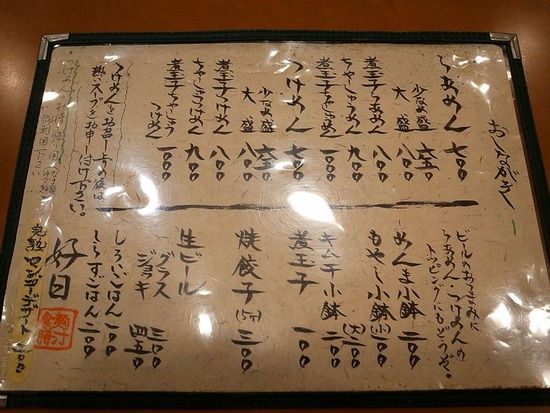 おしながき
らあめん 七〇〇
少なめ盛 六五〇
大盛 八〇〇
煮玉子らあめん 八〇〇
ちゃしゅうめん 九〇〇
煮玉子ちゃしゅうめん 一〇〇〇
つけめん 七〇〇
少なめ盛 六五〇
大盛 八〇〇
煮玉子つけめん 八〇〇
ちゃしゅうつけめん 九〇〇
煮玉子ちゃしゅうつけめん 一〇〇〇
つけめんをお召し上りの後は
熱いスープをお申し付け下さい。
ビールのおつまみに
らあめん・つけめんの
トッピングにもどうぞ。
めんま小鉢 一〇〇
もやし小鉢 (小)一〇〇
(大)二〇〇
キムチ小鉢 一〇〇
煮玉子 一〇〇
焼餃子(5ヶ) 三〇〇
生ビール
グラス 三〇〇
ジョッキ 四五〇
しろいごはん 一〇〇
しらすごはん 二〇〇
好日
完熟マンゴーデザート 二〇〇